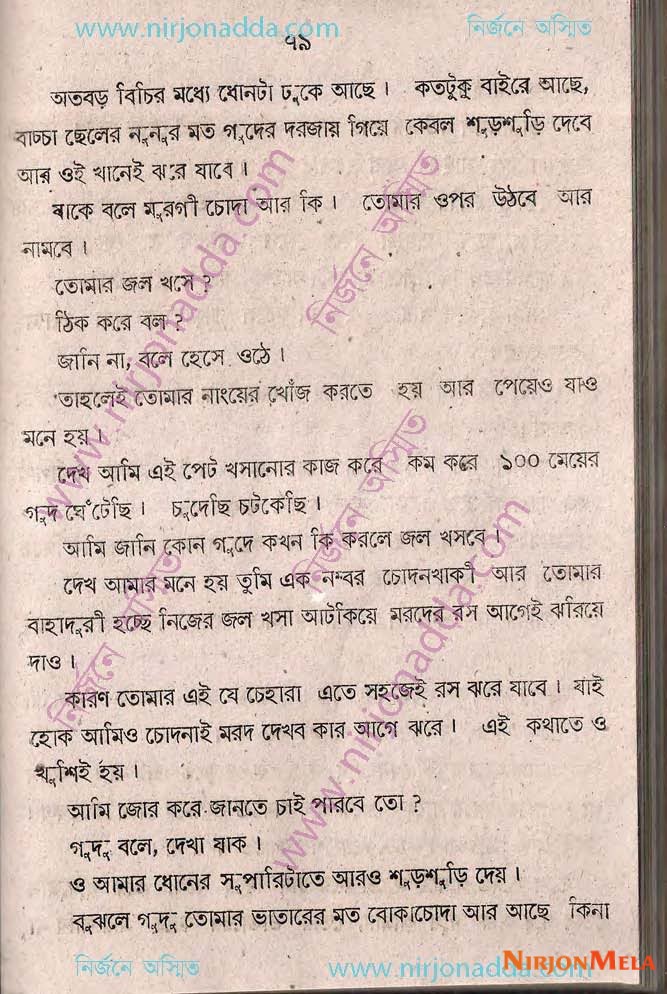 www.nirjonadda.com নির্জনে অস্মিত
৭৯
অতবড় বিচির মধ্যে ধোনটা ঢুকে আছে। কতটুকু বাইরে আছে,
বাচ্চা ছেলের নুনুর মত গুদের দরজায় গিয়ে কেবল শুড়শুড়ি দেবে
আর ওই খানেই ঝরে যাবে।
যাকে বলে মুরগী চোদা আর কি। তোমার ওপর উঠবে আর
নামবে।
তোমার জল খসে?
ঠিক করে বল?
জানি না, বলে হেসে ওঠে।
তাহলেই তোমার নাংয়ের খোঁজ করতে হয় আর পেয়েও যাও
মনে হয়।
দেখ আমি এই পেট খসানোর কাজ করে কম করে ১০০ মেয়ের
গুদ ঘেঁটেছি। চুদেছি চটকেছি।
আমি জানি কোন গুদে কখন কি করলে জল খসবে।
দেখ আমার মনে হয় তুমি এক নম্বর চোদনখাকী আর তোমার
বাহাদুরী হচ্ছে নিজের জল খসা আটকিয়ে মরদের রস আগেই ঝরিয়ে
দাও।
কারণ তোমার এই যে চেহারা এতে সহজেই রস ঝরে যাবে। যাই
হোক আমিও চোদনাই মরদ দেখব কার আগে ঝরে। এই কথাতে ও
খুশিই হয়।
আমি জোর করে জানতে চাই পারবে তো?
গুদু বলে, দেখা যাক।
ও আমার ধোনের সুপারিটাতে আরও শুড়শুড়ি দেয়।
বুঝলে গুদু তোমার ভাতারের মত বোকাচোদা আর আছে কিনা
নির্জনে অস্মিত www.nirjonadda.com
NIRJONMELA
www.nirjonadda.com
নির্জনে অস্মিত
www.nirjonadda.com
নির্জনে অস্মিত
নির্জনে অস্মিত